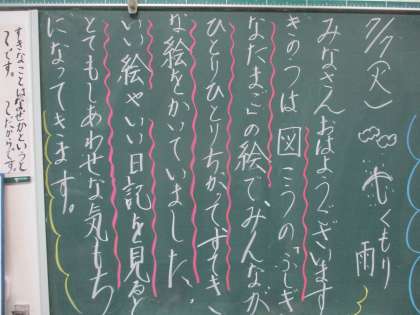 7/7(火) くもり 雨
みなさんおはようございます
きのうは図こうの「ふしぎ
なたまご」の絵で、みんなが
ひとりひとりちがってすてき
な絵をかいていました。
いい絵やいい日記を見ると
とてもしあわせな気もち
になってきます。
すきなことは
なぜかというと
です。
だからです。